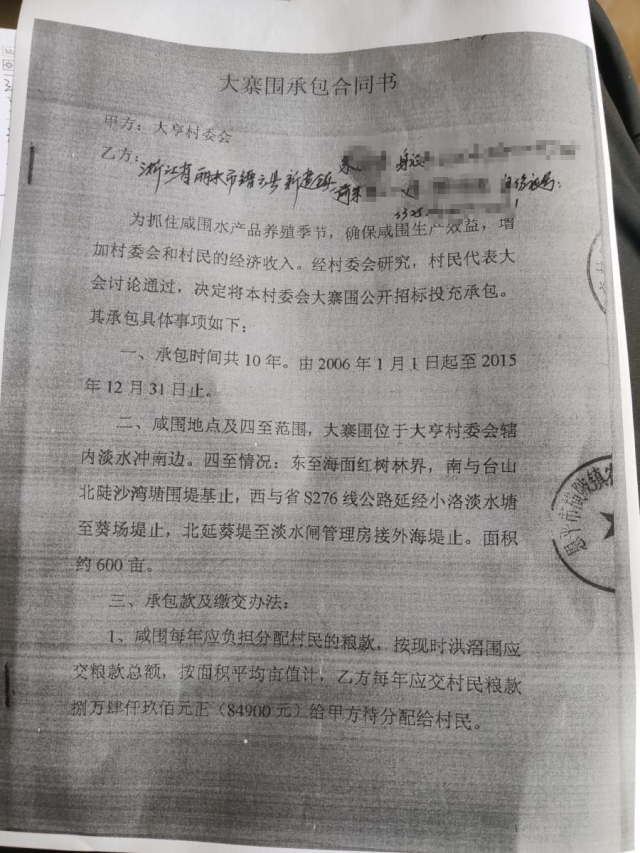 大寨围承包合同书
甲方：大亨村委会
乙方：浙江省丽水市缙云县新建镇
身份证号：
为抓住咸围水产品养殖季节，确保咸围生产效益，增
加村委会和村民的经济收入。经村委会研究，村民代表大
会讨论通过，决定将本村委会大寨围公开招标投充承包。
其承包具体事项如下：
一、承包时间共10年。由2006年1月1日起至2015
年12月31日止。
二、咸围地点及四至范围，大寨围位于大亨村委会辖
内淡水冲南边。四至情况：东至海面红树林界，南与台山
北陡沙湾塘围堤基止，西与省S276线公路延经小洛淡水塘
至葵场堤止，北延葵堤至淡水闸管理房接外海堤止。面积
约600亩。
三、承包款及缴交办法：
1、咸围每年应负担分配村民的粮款，按现时洪滘围应
交粮款总额，按面积平均亩值计，乙方每年应交村民粮款
捌万肆仟玖佰元正（84900元）给甲方待分配给村民。
恩平市横陂镇